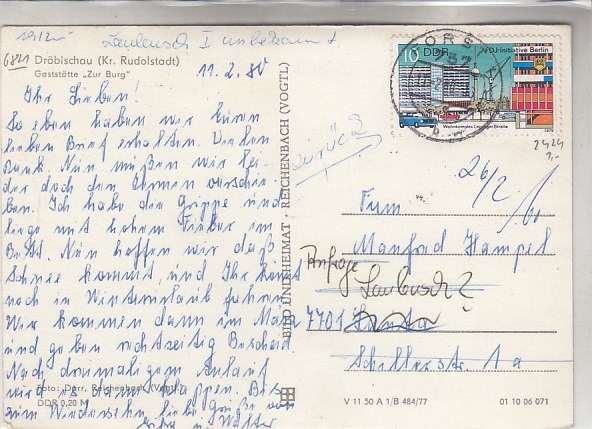 Laubusch I unbekannt
6821
Dröbischau (Kr. Rudolstadt)
Gaststätte „Zur Burg"
11.2.80
Ihr Lieben!
So eben haben wir Euren
lieben Brief erhalten. Vielen
Dank. Nun müssen wir lei-
der doch den Termin verschie-
ben. Ich habe die Grippe und
liege mit hohem Fieber im
Bett. Nun hoffen wir daß
Schnee kommt und Ihr könnt
noch in Winterurlaub fahren.
Wir kommen dann im März
und geben rechtzeitig Bescheid.
Nach dreimaligem Anlauf
wird es dann klappen. Bis
zum Wiedersehn, liebe Grüße von
Foto: Darr, Reichenbach (Vogtl.)
DDR 0,20 M
BILD UND HEIMAT · REICHENBACH (VOGTL)
zurück
10 DDR FDJ-Initiative Berlin
Wohnkomplex Leipziger Straße
2424
26/2
Fam.
Manfred Hampel
Anfrage
Laubusch?
7701
Schillerstr. 1a
V 11 50 A 1/B 484/77
01 10 06 071